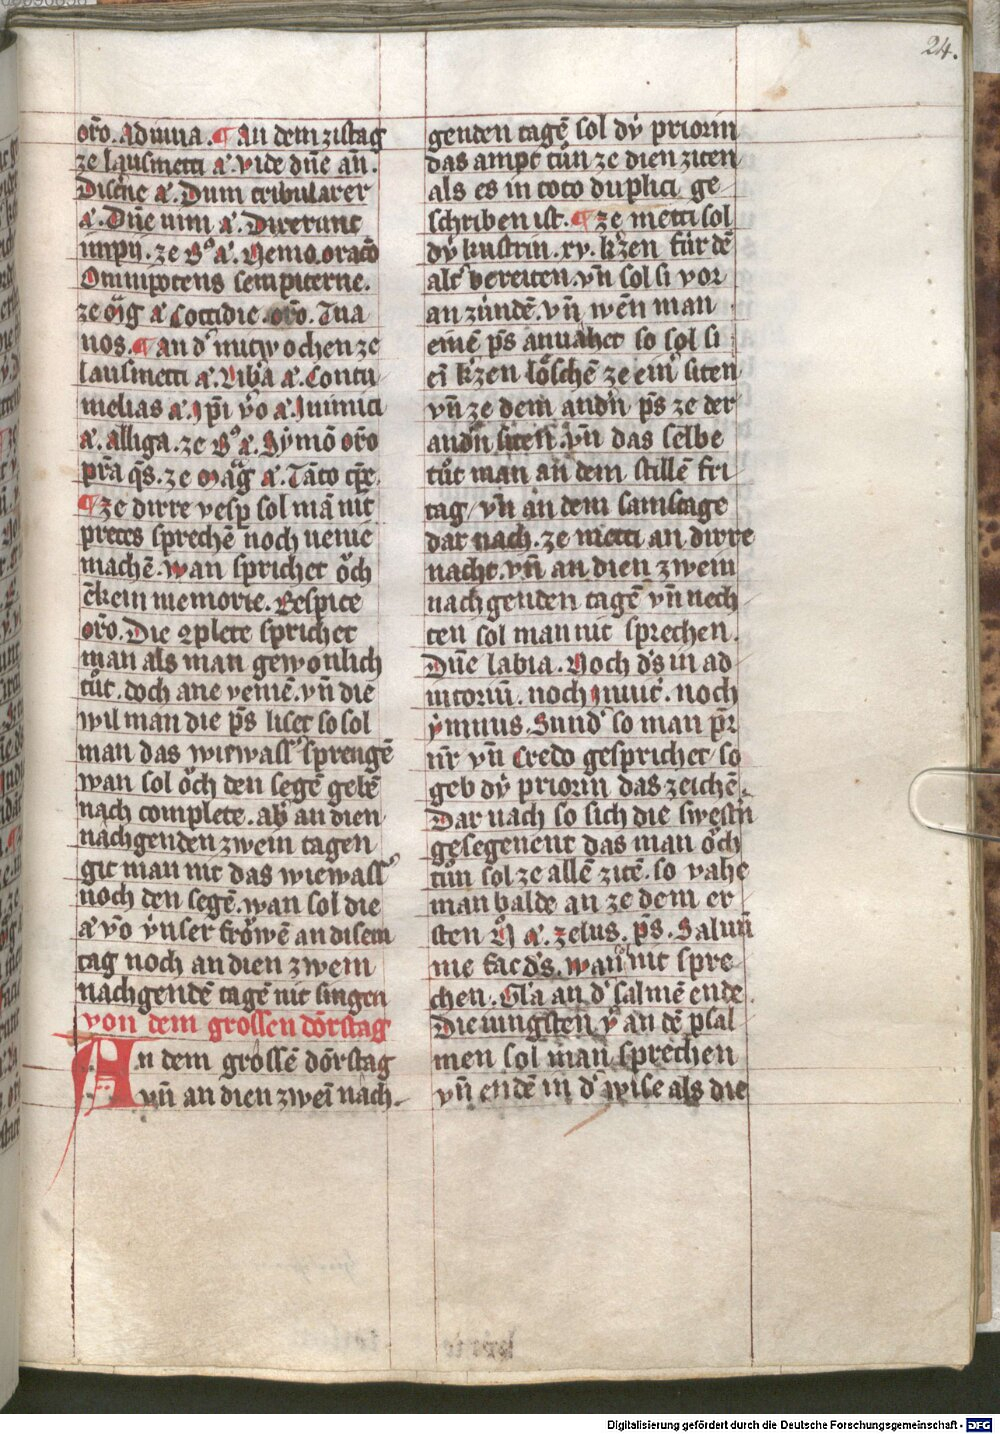 24.
or̄o. Adiuua. ¶ An dem zistag
ze lausmetti a̛. vide dn̄e an̄.
Discˀne a̛. Dum tribularer
a̛. Dn̄e vim a̛. Dixerunt
impij. ze Bˢ a̛. Nemo. oracō
Omnipotens sempiterne.
ze mg̃ a̛ Cottidie. or̄o. Tua
nos. ¶ an dˀ mitwochen ze
lausmetti a̛. Libˀa a̛. Contu
melias a̛. ip̄i vˀo a̛ Inimici
a̛. alliga. ze Bˢ a̛. Symō or̄o
pr̄a qs̄. ze mag̃ a̛. Tāto tp̄r̄e.
¶ ze dirre vesp̄ sol mā nit
preces sprechē noch venie
machē. wan sprichet oͤch
ēkein memorie. Respice
or̄o. Die 2plete sprichet
man als man gewonlich
tuͦt. doch ane veniē. vn̄ die
wil man die ps̄ liset so sol
man das wiewassˀ sprengē
wan sol oͤch den segē gebē
nach complete. ab an dien
nachgenden zwein tagen
git man nit das wiewassˀ
noch den segē. wan sol die
a̛ vō vnser froͤwē an disem
tag noch an dien zwein
nachgendē tagē nit singen
von dem grossen dōrstag
An dem grossē dōrstag
vn̄ an dien zwei nach
genden tagē sol dy priorin
das ampt tuͦn ze dien ziten
als es in toto duplici ge
schriben ist. ¶ ze metti sol
dy kustrin. xv. kˀzen für dē
altˀ bereiten. vn̄ sol si vor
an zündē. vn̄ wen̄ man
einē ps̄ anvahet so sol si
ei kˀzen loͤschē ze einˀ siten
vn̄ ze dem andˀn ps̄ ze der
andˀn siten. vn̄ das selbe
tuͦt man an dem stillē fri
tag vn̄ an dem samstage
dar nach. ze metti an dirre
nacht. vn̄ an dien zwein
nach genden tagē vn̄ nech
ten sol man nit sprechen.
Dn̄e labia. Noch ds̄ in ad
iutoriū. noch inuitˀ. noch
ymnus. Sundˀ so man pr̄
nr̄ vn̄ Credo gesprichet so
geb dy priorin das zeichē.
Dar nach so sich die swestˀn
gesegenent das man oͤch
tuͦn sol ze allē zitē. so vahe
man balde an ze dem er
sten N a̛. zelus. ps̄. Saluū
me fac ds̄. wan nit spre
chen. Gl̄a an dˀ salmē ende
Die iungsten v̄ an dē psal
men sol man sprechen
vn̄ endē in dˀ wise als die
Digitalisierung gefördert durch die Deutsche Forschungsgemeinschaft - DFG